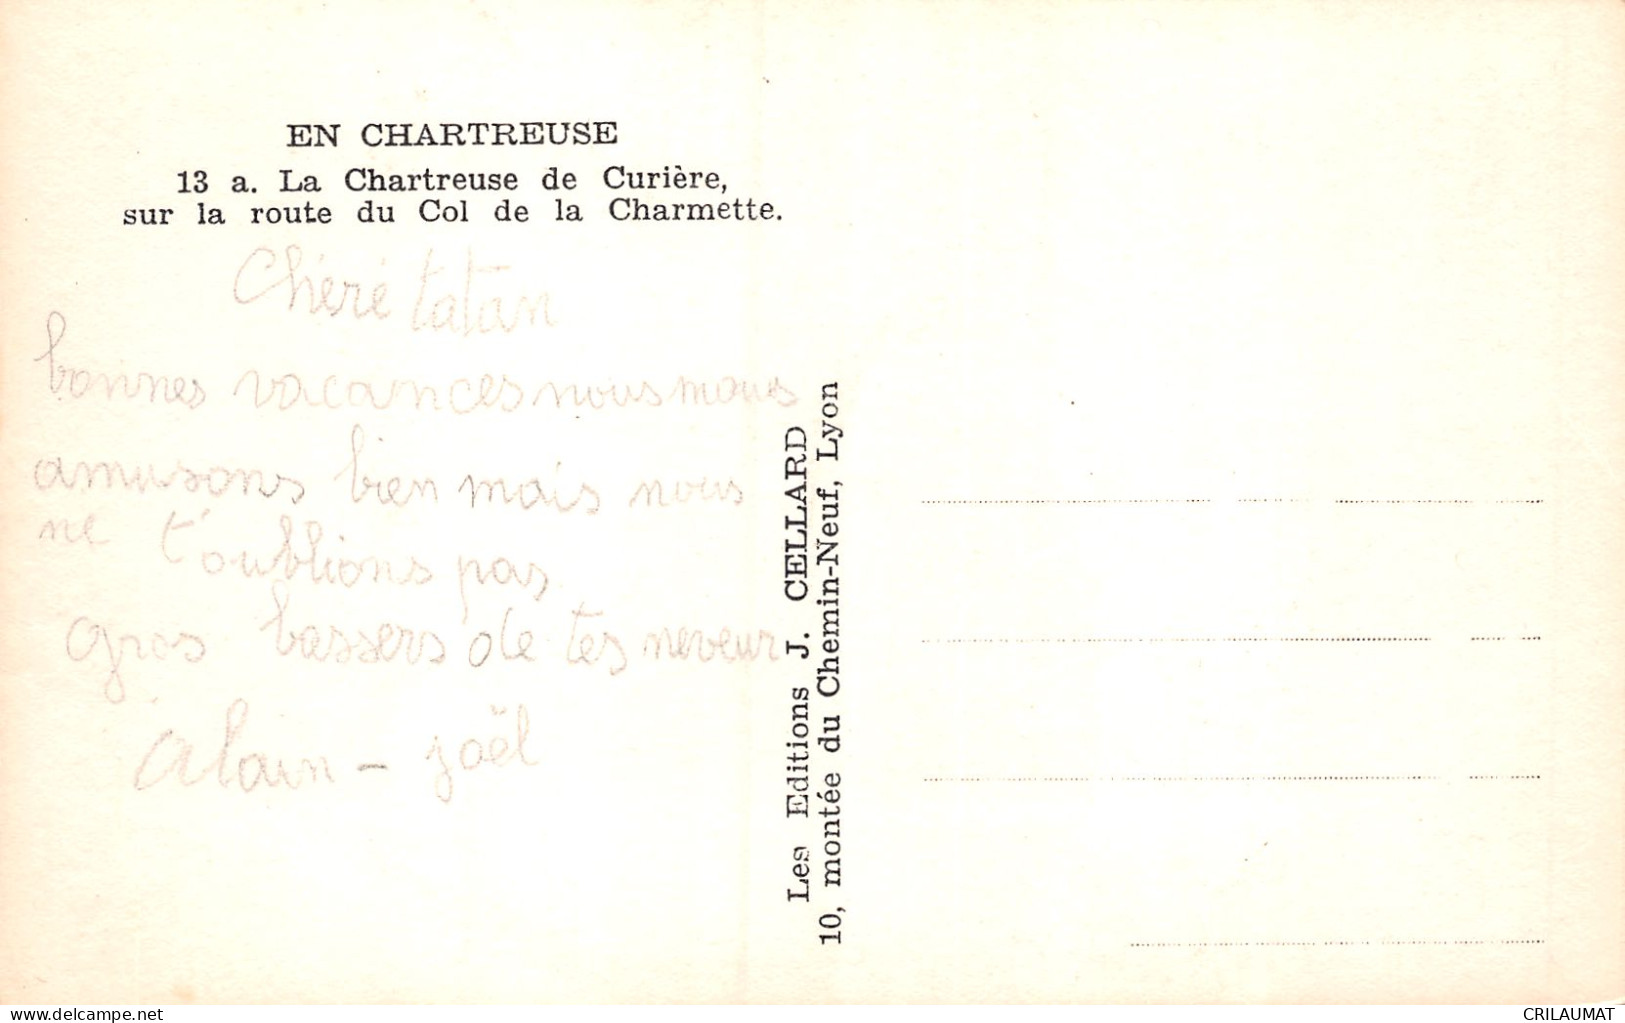 EN CHARTREUSE
13 a. La Chartreuse de Curière,
sur la route du Col de la Charmette.
Chéré tatan
bonnes vacances nous mous
amusons bien mais nous
ne t'oublions pas
gros bessers de tes neveur
alain - joël
Les Editions J. CELLARD
10, montée du Chemin-Neuf, Lyon
www.delcampe.net
CRILAUMAT